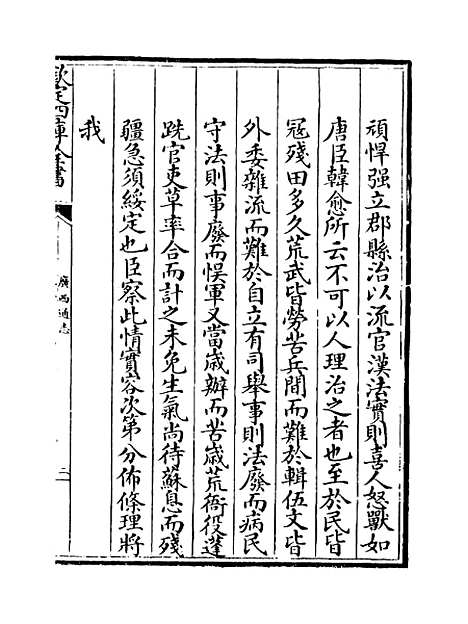 頑悍强立郡縣治以流官漢法實則喜人怒獸如
唐臣韓愈所云不可以人理治之者也至於民皆
冦殘田多久荒武皆勞苦兵間而難於輯伍文皆
外委雜流而難於自立有司舉事則法廢而病民
守法則事廢而悞軍又當歲辦而苦歲荒衙役蓬
跣官吏草率合而計之未免生氣尚待蘇息而殘
疆急須綏定也臣察此情實容次第分佈條理將
我
欽定四庫全書
廣西通志
二